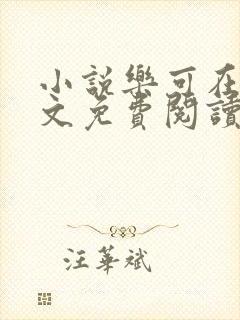 小説樂可在
文免費閱讀
汪華斌